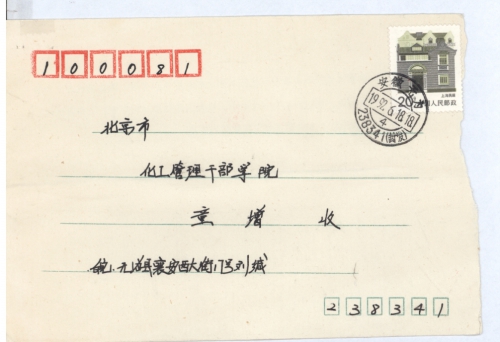 100081
20分
上海民居
中国人民邮政
安徽
1992.6.18.18
4
238341(襄安)
北京市
化工管理干部学院
童增 收
皖.无为县襄安西大街17号刘城
238341